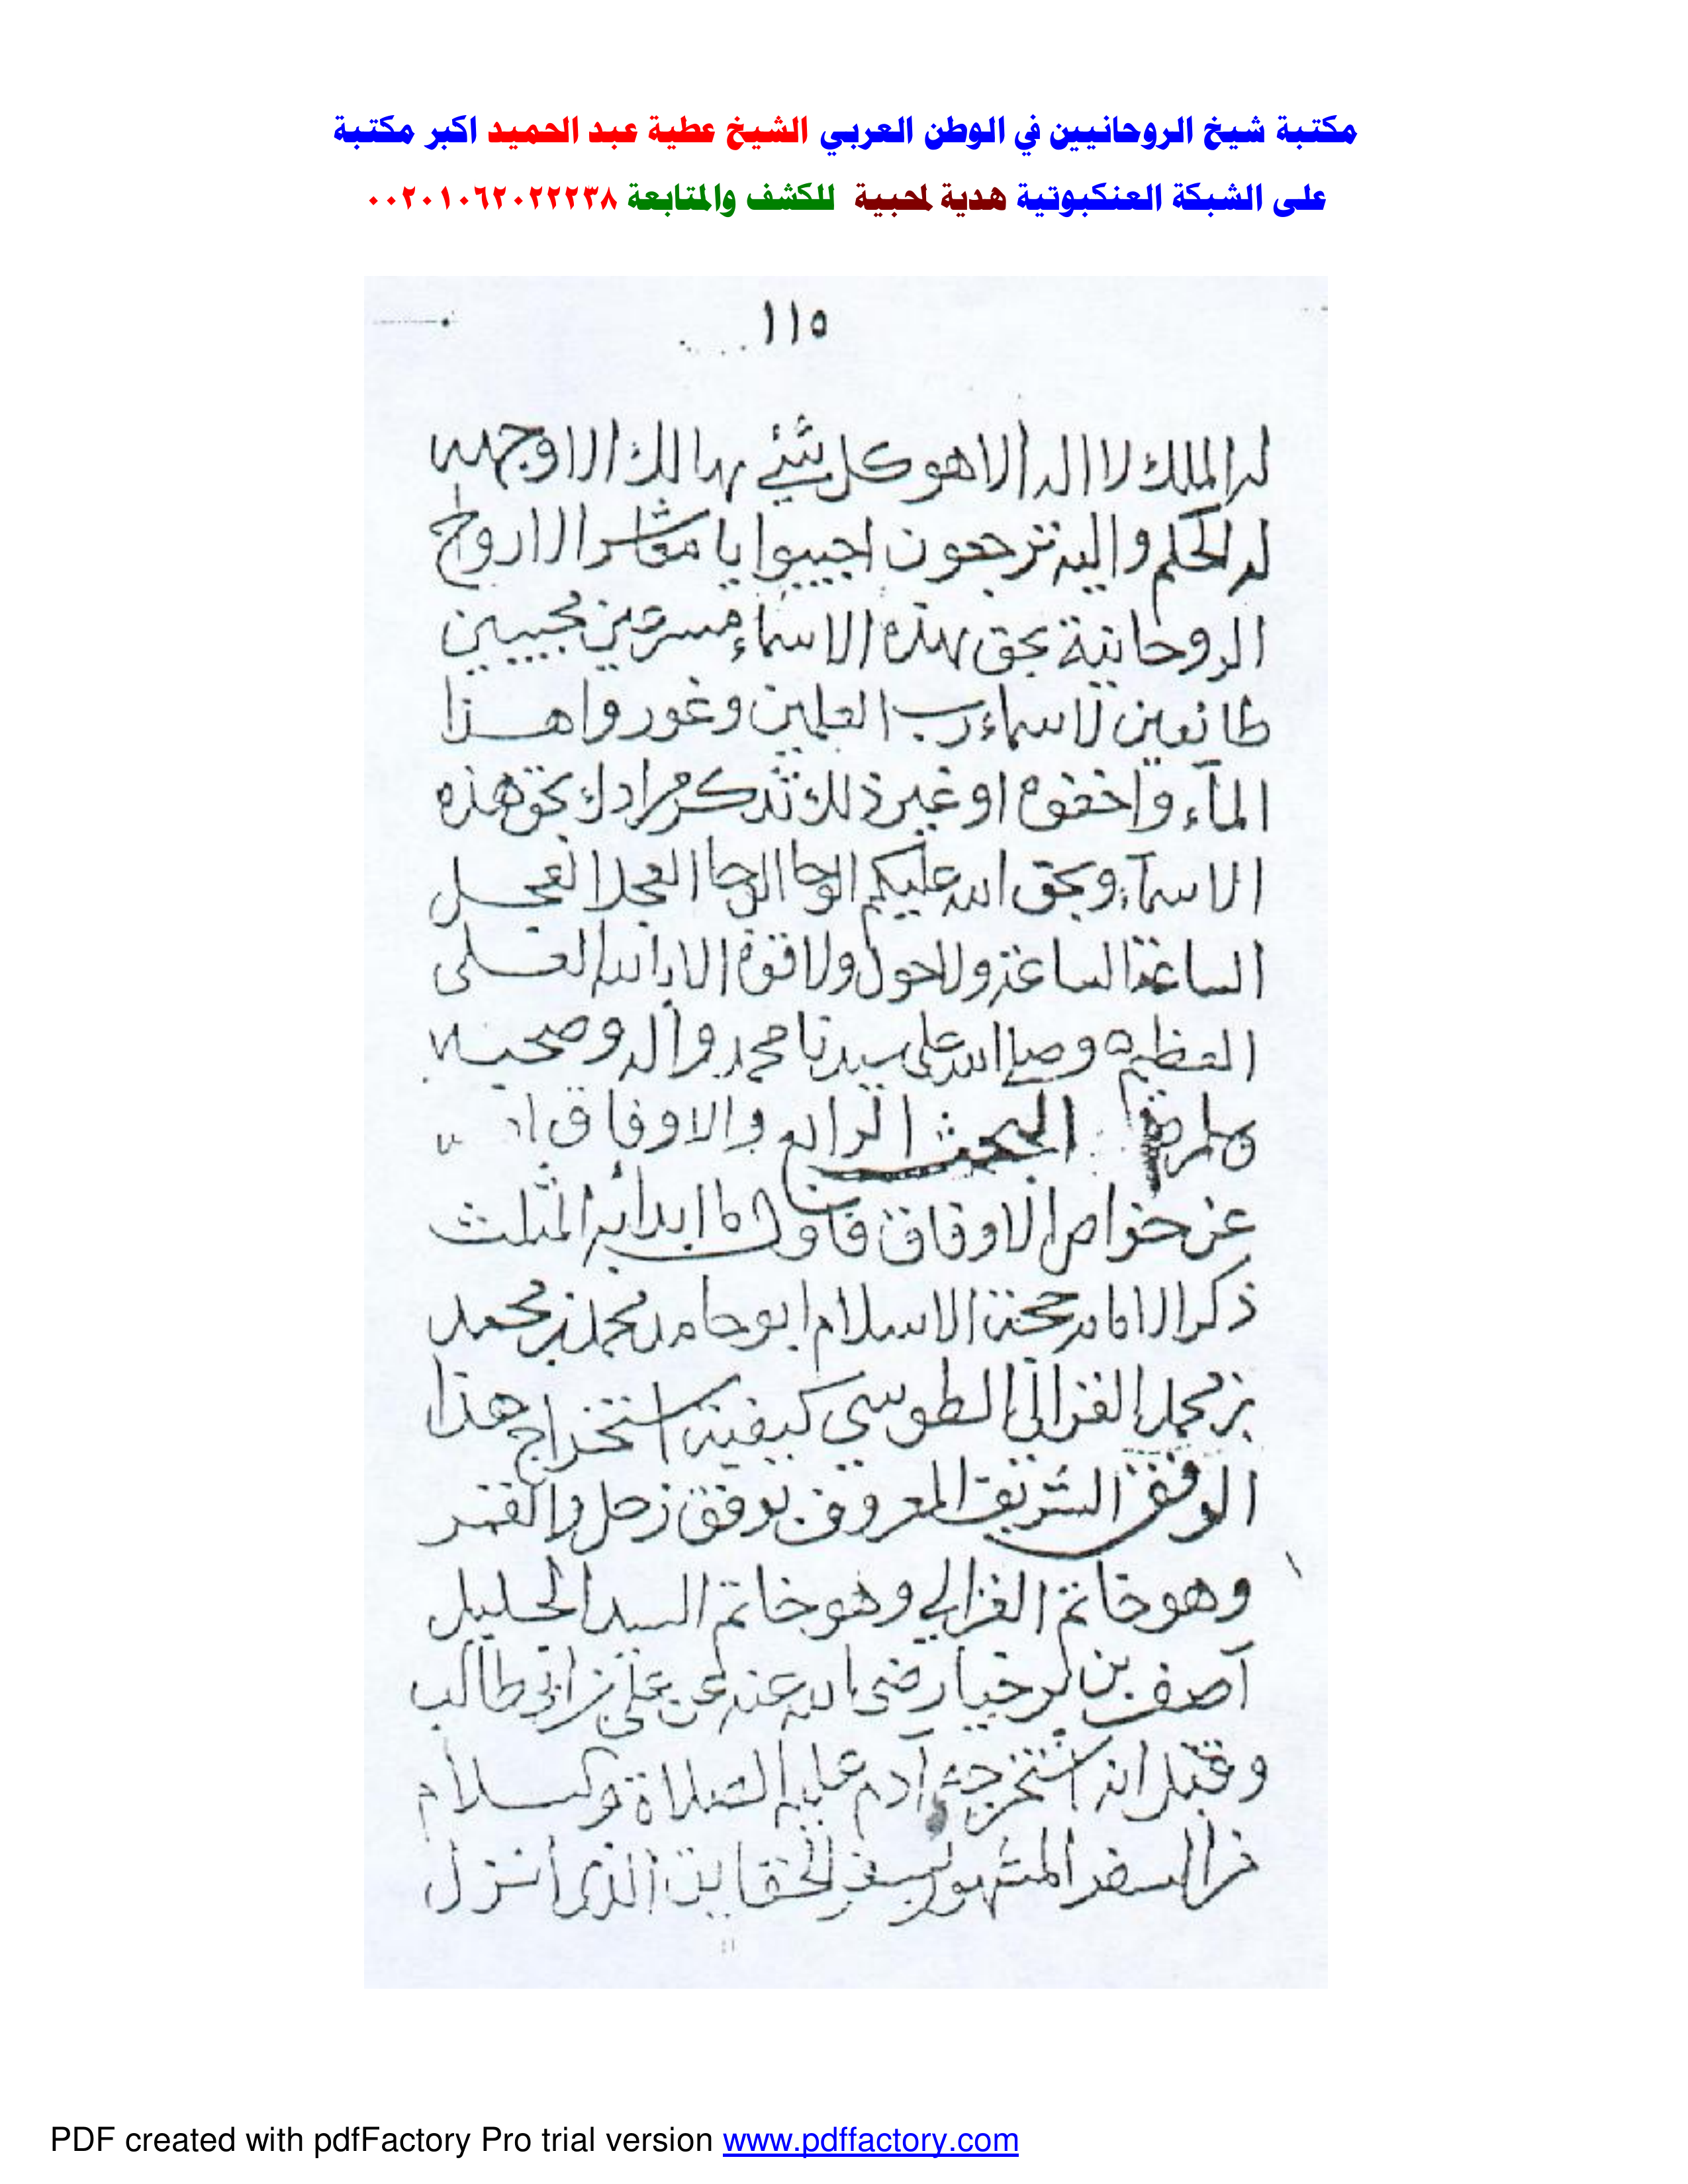 مكتبة شيخ الروحانيين في الوطن العربي الشيخ عطية عبد الحميد اكبر مكتبة
على الشبكة العنكبوتية هدية لمحبية للكشف والمتابعة ٠٠٢٠١٠٦٢٠٢٢٢٣٨
١١٥
له الملك لا اله الا هو كل شئ هالك الا وجهه
له الحكم واليه ترجعون اجيبوا يا معاشر الارواح
الروحانية بحق هذه الاسماء مسرعين مجيبين
طائعين لاسماء رب العلمين وغوروا هذا
المآء واخفوه او غير ذلك تذكر مرادك بحق هذه
الاسمآء وبحق الله عليكم الوحا الوحا العجل العجل
الساعة الساعة ولاحول ولا قوة الا بالله العلى
العظيم ه وصلى الله على سيدنا محمد وآله وصحبه
وسلم البحث الرابع والاوفاق
عن خواص الاوفاق فاول ما ابدأ به المثلث
ذكر الامام حجة الاسلام ابو حامد محمد بن محمد
بن محمد الغزالى الطوسي كيفية استخراج هذا
الوفق الشريف المعروف بوفق زحل والقمر
وهو خاتم الغزالي وهو خاتم السيد الجليل
آصف بن برخيا رضى الله عنه عن على بن ابى طالب
وقيل انه استخرجه آدم عليه الصلاة والسلام
من السفر المشهور بسفر الخفايا الذى انزل
PDF created with pdfFactory Pro trial version www.pdffactory.com